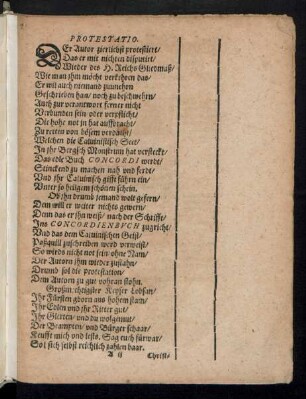 PROTESTATIO.
DEr Autor zierlichst protestiert/
Das er mit nichten disputirt/
Wieder des H. Reichs Gliedmaß/
Wie man ihm möcht verkehren das/
Er wil auch niemand zunehen
Geschrieben han/ noch zu beschwehrn/
Auch zur verantwort ferner nicht
Verbunden sein oder verpflicht/
Die hohe not in hat auffbracht/
Zu retten von bösem verdacht/
Welchen die Caluinistisch Sect/
In ihr Bergisch Monstrum hat versteckt/
Das edle Buch CONCORDI werdt/
Stinckend zu machen nah vnd ferdt/
Vnd ihr Caluinisch gifft führn ein/
Vnter so heilgem schönen schein.
Ob ihn drumb jemand wolt gefern/
Dem will er weiter nichts gewern/
Denn das er ihn weiß/ nach der Schrifft/
Ins CONCORDIENBVCH zugricht/
Vnd was dem Caluinischen Geist/
Paßquill zuschreiben word verweist/
So wirds nicht not sein ohne Nam/
Die Autorn ihm wieder zuslahn/
Drumb sol die protestation/
Dem Autorn zu gut vohran stohn.
Großm echtigster Keyser lobsan/
Ihr Fürsten gborn aus hohem stam/
Ihr Edlen vnd ihr Ritter gut/
Ihr Glerten/ vnd du wolgemut/
Der Beampten/ vnd Bürger schaar/
Keufft mich vnd lests. Sag euch fürwar/
Sol sich selbst reichlich zahlen baar.
A ij Christ-